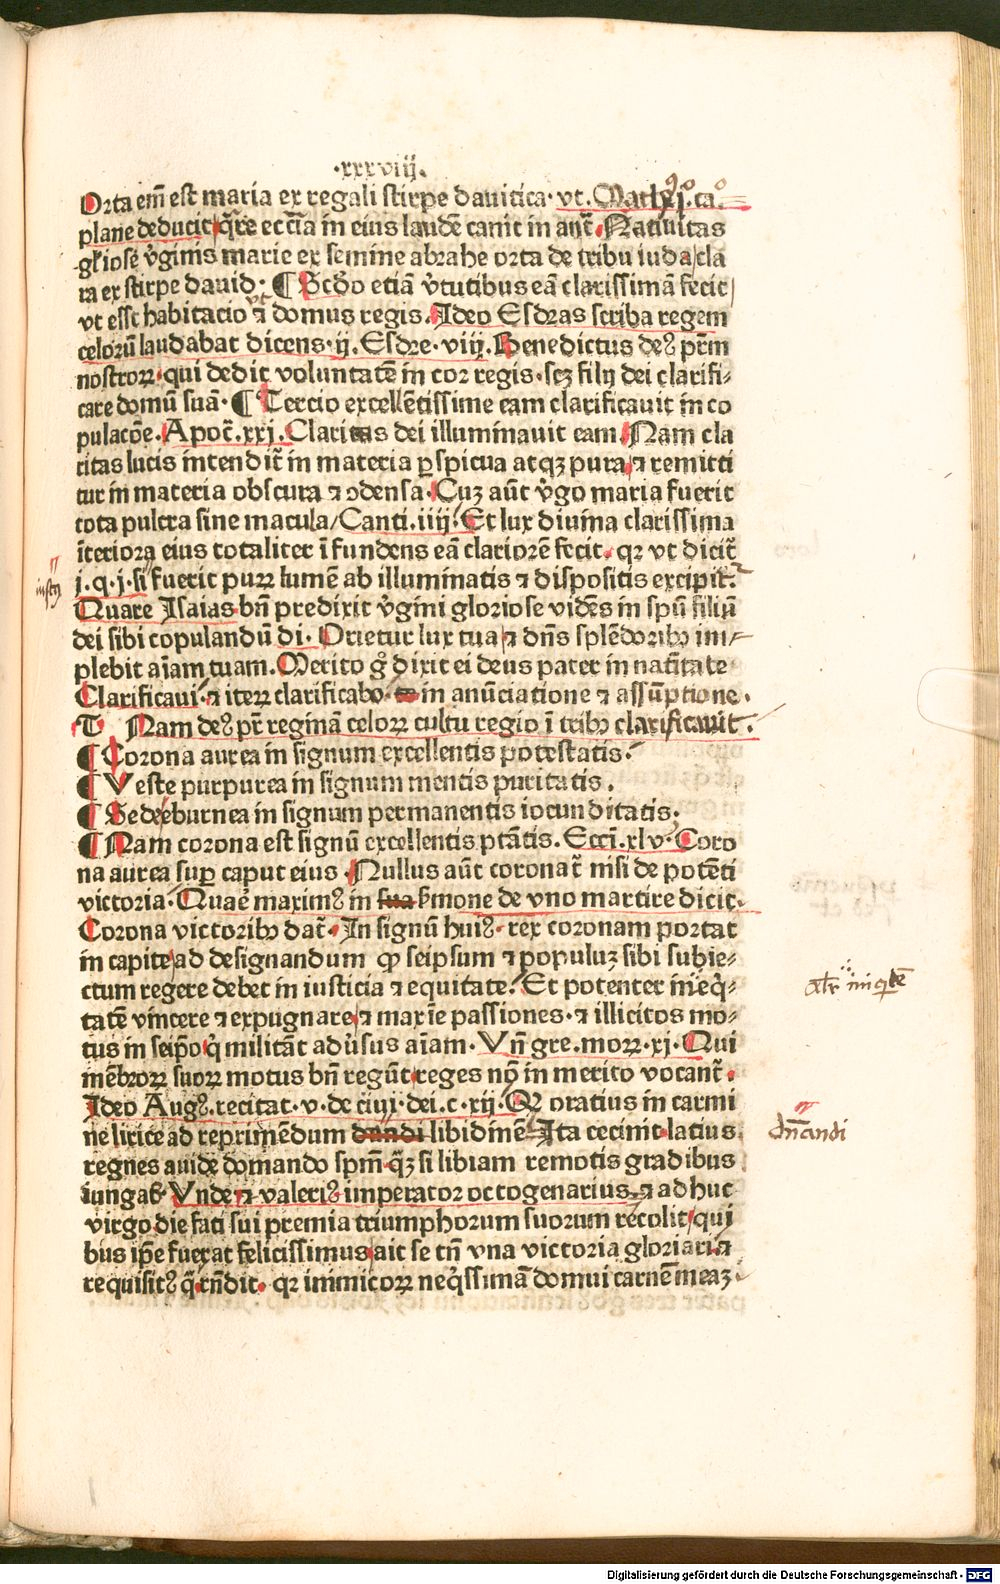 ·xxxviij.
Orta em̄ est maria ex regali stirpe dauitica· vt. Math. j. ca.
plane deducit q̄re eccīa in eius laudē canit in ant̄. Natiuitas
gl̄iose v̓ginis marie ex semine abrahe orta de tribu iuda cla
ra ex stirpe dauid· ¶ Scd̄o etiā v̓tutibus eā clarissimā fecit
vt esset habitacio ⁊ domus regis. Ideo Esdras scriba regem
celorū laudabat dicens· ij. Esdre· viij. Benedictus deꝰ pr̄m
nostroꝝ· qui dedit voluntatē in cor regis· scꝫ filij dei clarifi⸗
care domū suā· ¶ Tercio excellētissime eam clarificauit in co
pulacōe. Apoc̄. xxj. Claritas dei illuminauit eam Nam cla
ritas lucis intendit̄ in materia ꝑspicua atqꝫ pura ⁊ remitti
tur in materia obscura ⁊ odensa. Cuꝫ aūt v̓go maria fuerit
tota pulcra sine macula/ Canti. iiij. Et lux diuina clarissima
īteriora eius totaliter īfundens eā clariorē fecit· qꝛ vt dicit̄
j. q. j. si fuerit puꝝ lumē ab illuminatis ⁊ dispositis excipit̄.
Quare Isaias bn̄ predixit v̓gini gloriose vidēs in spū filiū
dei sibi copulandū di· Orietur lux tua ⁊ dn̄s splēdoribꝰ im⸗
plebit aīam tuam. Merito g̊ dixit ei deus pater in natītate
Clarificaui· ⁊ iteꝝ clarificabo· in anūciatione ⁊ assūptione.
T Nam deꝰ pr̄ reginā celoꝝ cultu regio ī tribꝰ clarificauit.
¶ Corona aurea in signum excellentis potestatis.
¶ Veste purpurea in signum mentis puritatis.
¶ Sede eburnea in signum permanentis iocunditatis.
¶ Nam corona est signū excellentis ptātis. Eccī. xlv· Coro
na aurea suꝑ caput eius· Nullus aūt coronat̄ nisi de potēti
victoria· Quaē maximꝰ in sua ẜmone de vno martire dicit.
Corona victoribꝰ dat̄· In signū huiꝰ· rex coronam portat
in capite ad designandum ꝙ seipsum ⁊ populuꝫ sibi subie⸗
ctum regere debet in iusticia ⁊ equitate. Et potenter inieq̓⸗
tatē vincere ⁊ expugnare ⁊ maxīe passiones· ⁊ illicitos mo⸗
tus in seip̄o q̓ militāt adu̓sus aīam· Vn̄ gre. moꝝ· xj. Qui
mēbroꝝ suoꝝ motus bn̄ regūt reges nō in merito vocant̄.
Ideo Augꝰ. recitat· v· de ciui· dei. c· xij. Qꝛ oratius in carmi
ne lirice ad reprimēdum dandi libidinē Ita cecinit latius
regnes auidę domando spm̄ q̄ꝫ si libiam remotis gradibus
iungas· Vnde ⁊ valeriꝰ imperator octogenarius ⁊ adhuc
virgo die fati sui premia triumphorum suorum recolit qui
bus ip̄e fuerat felicissimus ait se tn̄ vna victoria gloriari ⁊
requisitꝰ q̄ rn̄dit· qꝛ inimicoꝝ neq̓ssimā domui carnē meaꝫ
dn̄candi
Digitalisierung gefördert durch die Deutsche Forschungsgemeinschaft - DFG